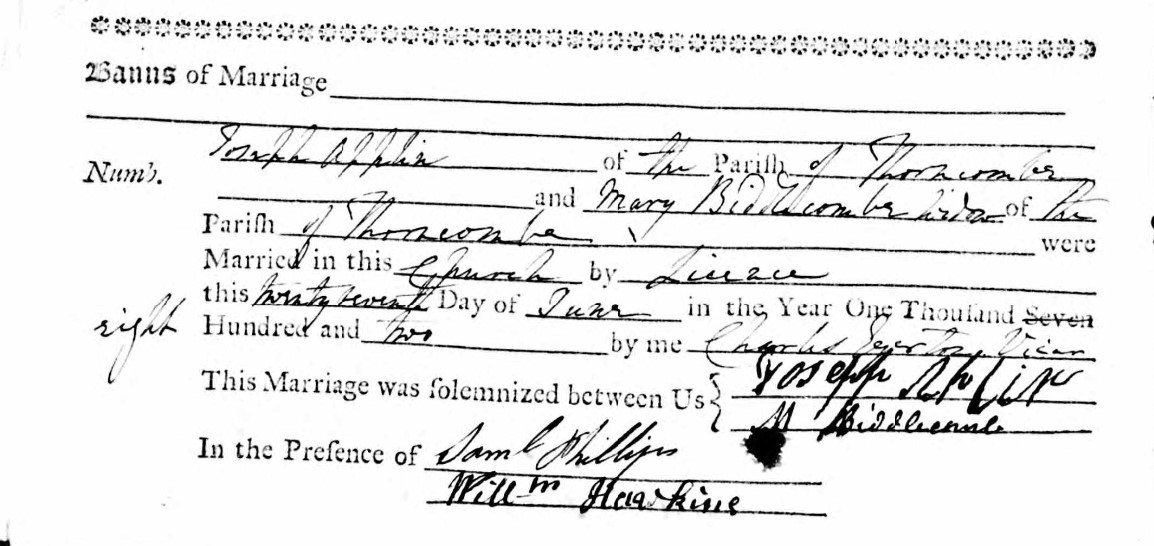 Banns of Marriage
Joseph Applin of the Pariſh of Thorncombe
Numb.
and Mary Biddlecombe Widow of the
Pariſh of Thorncombe were
Married in this Church by Licence
this twenty seventh Day of June in the Year One Thouſand Seven
eight Hundred and two by me Charles Egerton Vicar
This Marriage was ſolemnized between Us Joseph Aplin
M Biddlecomb
In the Preſence of Saml Phillips
Willm Hawkins